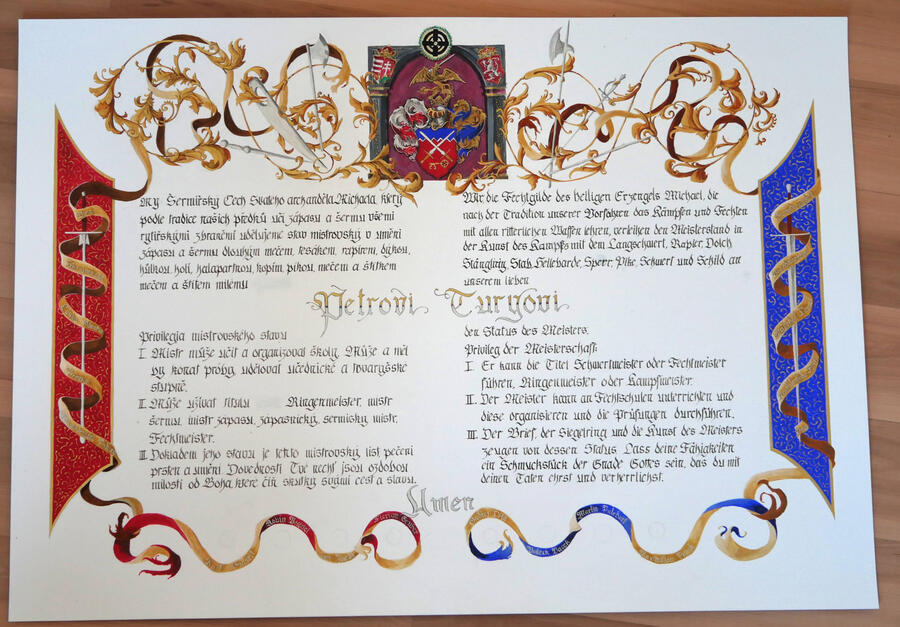 My Šermířský Cech Svatého archanděla Michaela, který
podle tradice našich předků učí zápasu a šermu všemi
rytířskými zbraněmi udělujeme stav mistrovský v umění
zápasu a šermu dlouhým mečem, tesákem, rapírem, dýkou,
hůlkou, holí, halapartnou, kopím, pikou, mečem a štítkem
mečem a štítem milému
Wir die Fechtgilde des heiligen Erzengels Michael, die
nach der Tradition unserer Vorfahren das Kämpfen und Fechten
mit allen ritterlichen Waffen lehren, verleihen den Meisterstand in
der Kunst des Kampfs mit dem Langschwert, Rapier, Dolch
Stab, Hellebarde, Speer, Pike, Schwert und Schild an
unserem lieben
Petrovi Turyovi
Privilegia mistrovského stavu
I. Mistr může učit a organizovat školy. Může a měl
by konat próby, udělovat učednické a tovaryšské
stupně.
II. Může užívat titulu Ringenmeister, mistr
šermu, mistr zápasu, zápasnický, šermířský mistr,
Fechtmeister.
III. Dokladem jeho stavu je tento mistrovský list pečetní
prsten a umění. Dovednosti Tvé nechť jsou ozdobou
milosti od Boha, které čiň skutky svými čest a slávu.
den Status des Meisters.
Privileg der Meisterschaft:
I. Er kann die Titel Schwertmeister oder Fechtmeister
führen, Ringenmeister oder Kampfmeister.
II. Der Meister kann an Fechtschulen unterrichten und
diese organisieren und die Prüfungen durchführen.
III. Der Brief, der Siegelring und die Kunst des Meisters
zeugen von dessen Status. Lass deine Fähigkeiten
ein Schmuckstück der Gnade Gottes sein, das du mit
deinen Taten ehrst und verherrlichst.
Amen